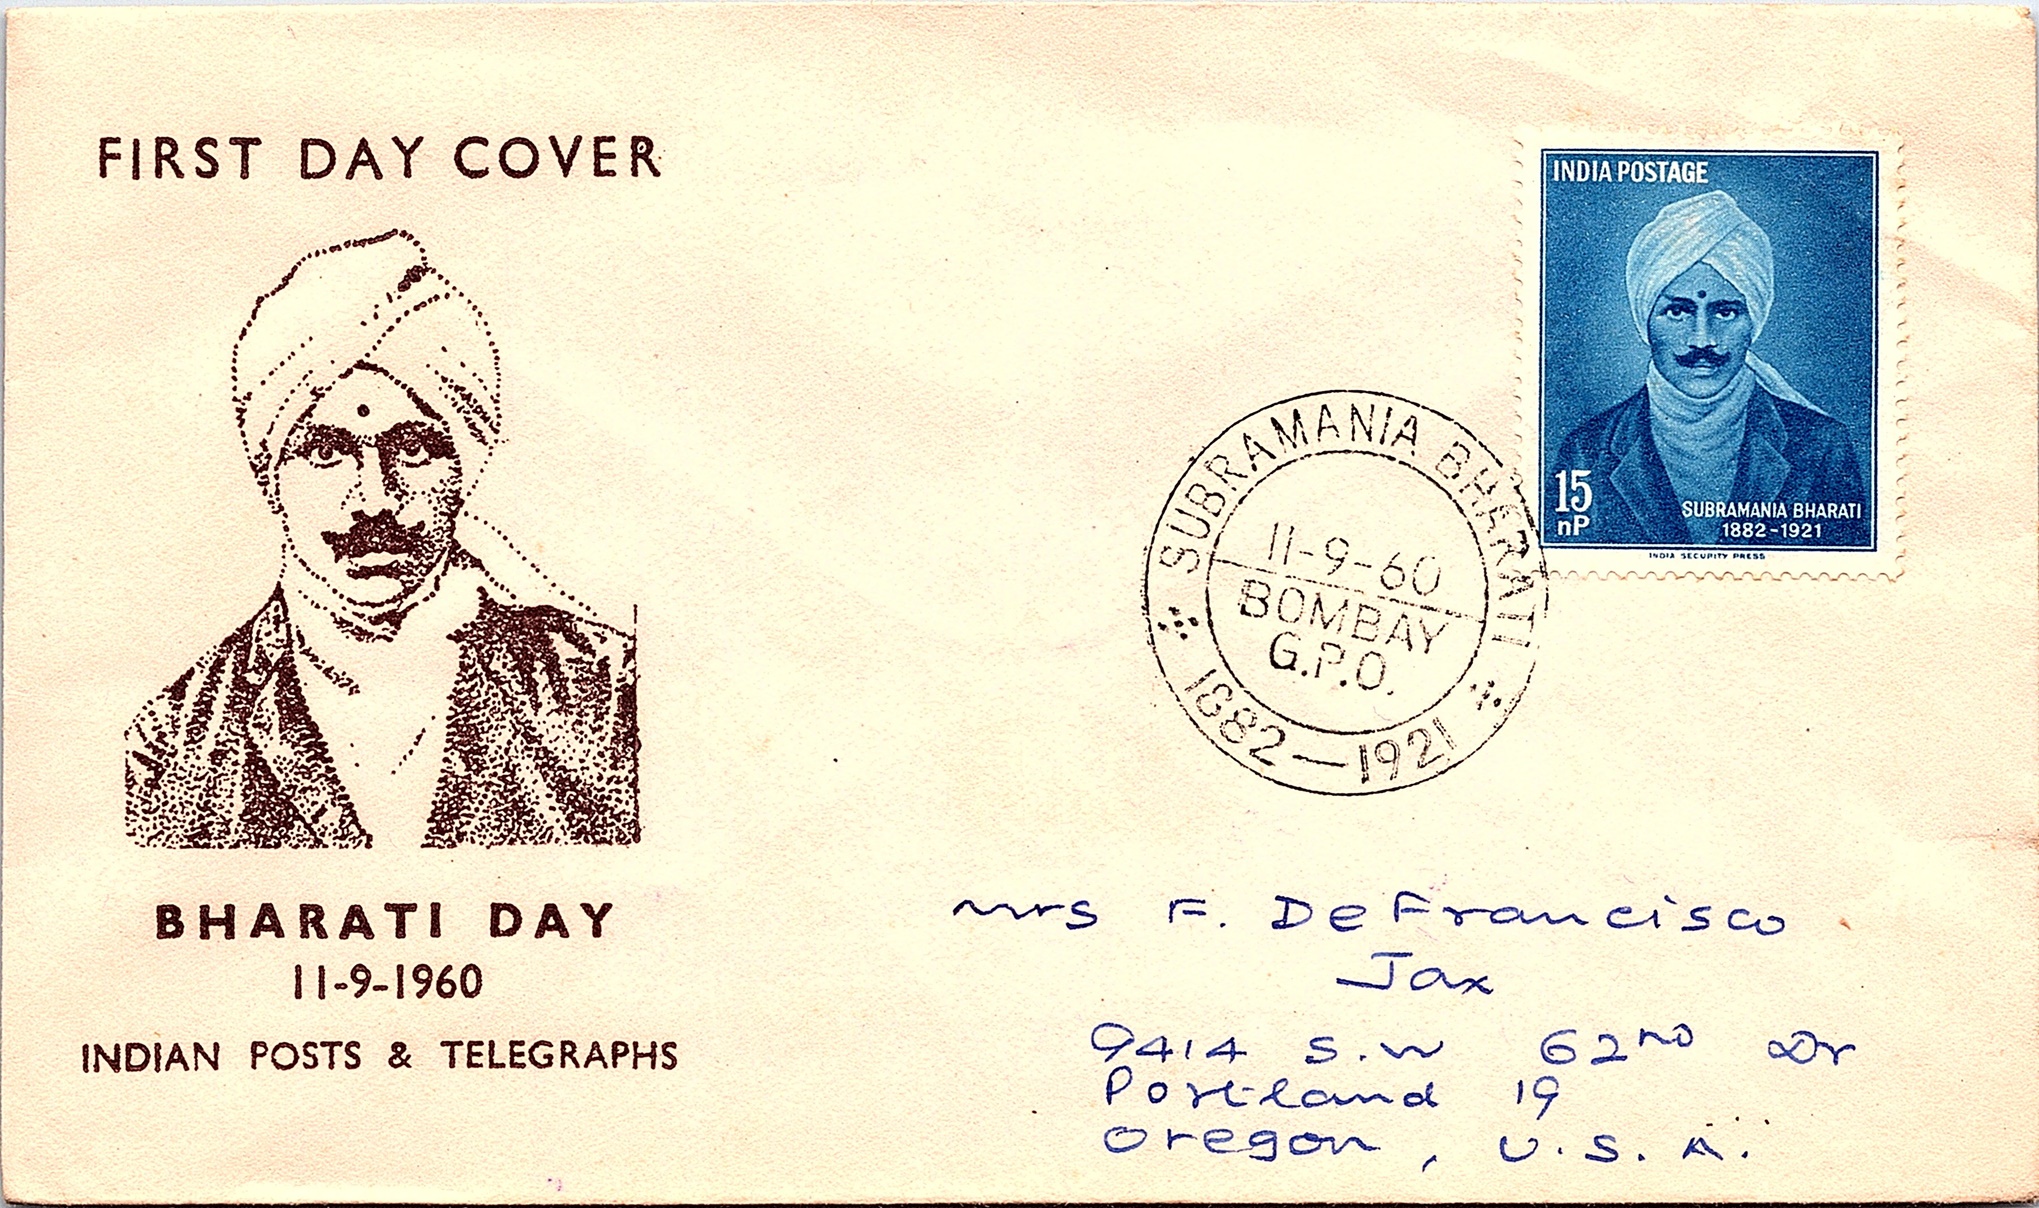 FIRST DAY COVER
BHARATI DAY
11-9-1960
INDIAN POSTS & TELEGRAPHS
INDIA POSTAGE
15
nP
SUBRAMANIA BHARATI
1882-1921
INDIA SECURITY PRESS
SUBRAMANIA BHARATI
11-9-60
BOMBAY
G.P.O.
1882-1921
Mrs F. DeFrancisco
Jax
9414 S.W 62ND Dr
Portland 19
Oregon, U.S.A.